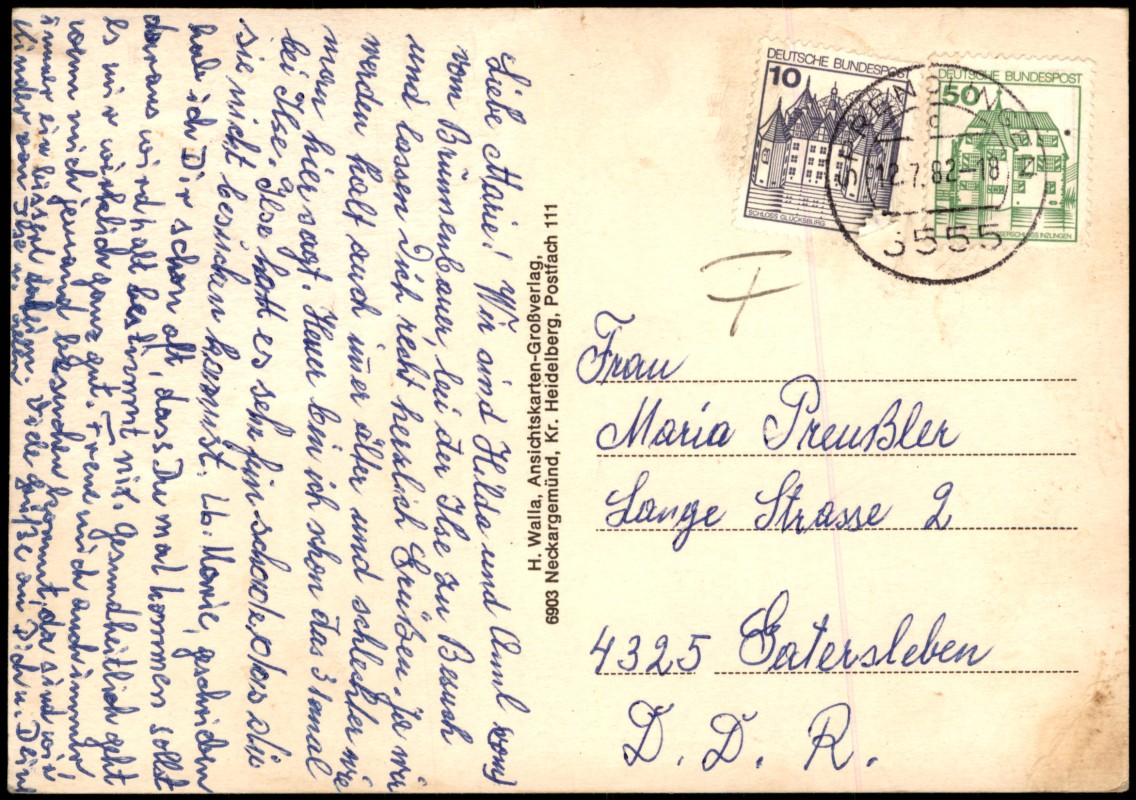 Liebe Marie! Wir sind Hilda und Anni vom
vom Brünnenbauer, bei der Ilse zu Besuch
und lassen Dich recht herzlich Grüßen. Ja wir
werden halt auch imer älter und schlechter wie
man hier sagt. Heuer bin ich schon das 31emal
bei Ilse. Ilse hatt es sehr fein schade, das du
sie nicht besuchen kannst. Lb: Marie, geschrieben
hab ich Dir schon oft, dass Du mal kommen sollst
daraus wird halt bestimmt nix. Gesundheitlich geht
es mir wirklich ganz gut. Freue mich auch immer
wenn mich jemand besuchen kommt, da sind wir
imer ein bissen daheim. Viele Grüße an Dich u. Dein
Kinder von
H. Walla, Ansichtskarten-Großverlag,
6903 Neckargemünd, Kr. Heidelberg, Postfach 111
DEUTSCHE BUNDESPOST
10
SCHLOSS GLÜCKSBURG
DEUTSCHE BUNDESPOST
50
WASSERSCHLOSS INZLINGEN
12.7.82-18
3555
F
Frau
Maria Preußler
Lange Strasse 2
4325 Gatersleben
D. D. R.